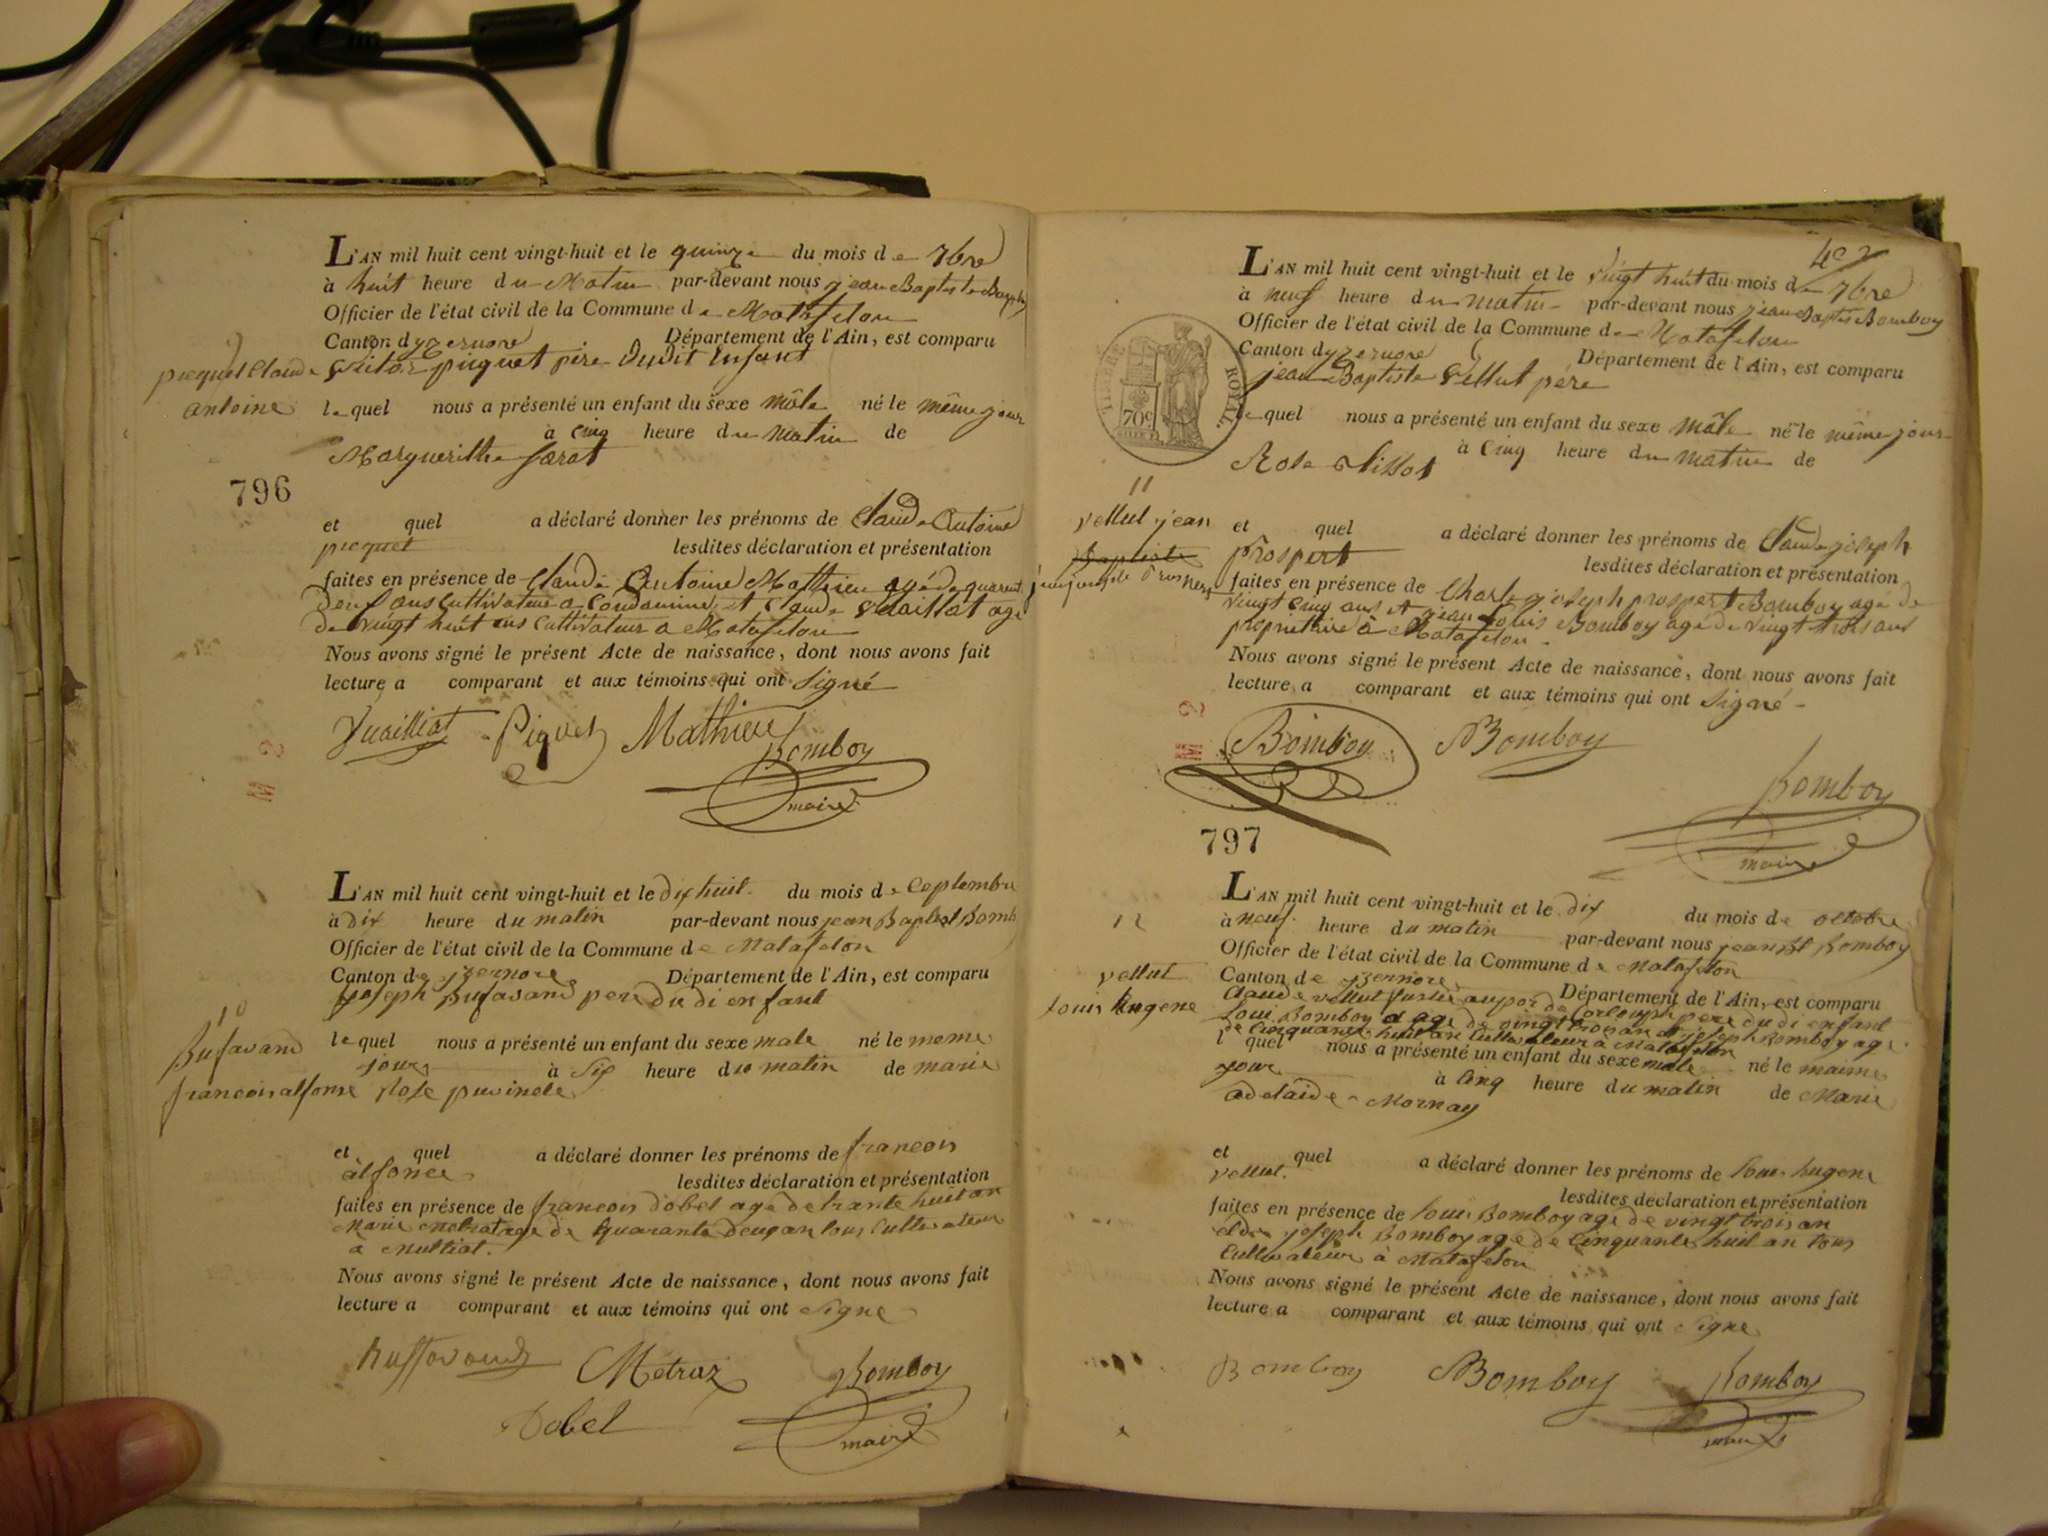 L'AN mil huit cent vingt-huit et le quinze du mois de 7bre
à huit heure du Matin par-devant nous jean Baptiste Bomboy
Officier de l'état civil de la Commune de Matafelon
Canton dyzernore Département de l'Ain, est comparu
picquet père Dudit Enfant
picquet Claude
antoine
le quel nous a présenté un enfant du sexe mâle né le même jour
à cinq heure du matin de
Marguerithe
796
et quel a déclaré donner les prénoms de Claude Antoine
picquet lesdites déclaration et présentation
faites en présence de Claude Antoine Mathieu agé de quarent
Deuf ans Cultivateur a Condamine et Claude Vuaillat age
De vingt huit ans Cultivateur a Matafelon
Nous avons signé le présent Acte de naissance, dont nous avons fait
lecture a comparant et aux témoins qui ont Signé
Vuailliat Piquet Mathieu
Bomboy
maire
M 2
L'AN mil huit cent vingt-huit et le dix huit du mois de Ceptembre
à dix heure du matin par-devant nous jean Baptist Bomb
Officier de l'état civil de la Commune de Matafelon
Canton de yzernore Département de l'Ain, est comparu
joseph Bufavand pere du di enfant
10
Bufavand
francois alfonse
le quel nous a présenté un enfant du sexe male né le meme
jour à Six heure du matin de marie
Rose
et quel a déclaré donner les prénoms de francois
alfonce lesdites déclaration et présentation
faites en présence de francois dobel age de trante huit an
Marie Metrat age de quarante deux an tous Cultivateur
a
Nous avons signé le présent Acte de naissance, dont nous avons fait
lecture a comparant et aux témoins qui ont Signe
buffavand Métraz Bomboy
Dobel maire
L'AN mil huit cent vingt-huit et le Vingt huit du mois de 7bre
à neuf heure du matin par-devant nous jean Baptiste Bomboy
Officier de l'état civil de la Commune de Matafelon
Canton dyzernore Département de l'Ain, est comparu
jean Baptiste Vellut père
TIMBRE ROYAL.
70c
le quel nous a présenté un enfant du sexe mâle né le même jour
à Cinq heure du matin de
Rose Tissot
11
vellut jean
Baptiste
et quel a déclaré donner les prénoms de Claude joseph
prospert lesdites déclaration et présentation
faites en présence de Charle joseph prospert Bomboy agé de
Vingt Cinq ans et jean Louis Bomboy agé de Vingt trois ans
propriettaire à Matafelon
Nous avons signé le présent Acte de naissance, dont nous avons fait
lecture a comparant et aux témoins qui ont Signé
M 2
Bomboy Bomboy
Bomboy
maire
797
L'AN mil huit cent vingt-huit et le dix du mois de octobre
à neuf heure du matin par-devant nous jean Bt Bomboy
Officier de l'état civil de la Commune de Matafelon
Canton de yzernore Département de l'Ain, est comparu
Claude vellut pere du di enfant
Loui Bomboy age de vingt trois an et joseph Bomboy age
de Cinquante huit an Cultivateur a Matafelon
12
vellut
Louis Eugene
l quel nous a présenté un enfant du sexe male né le maime
jour à Cinq heure du matin de Marie
adelaide Mornay
et quel a déclaré donner les prénoms de Loui hugene
vellut. lesdites déclaration et présentation
faites en présence de Loui Bomboy age de vingt trois an
et de joseph Bomboy age de Cinquante huit an tous
Cultivateur à Matafelon
Nous avons signé le présent Acte de naissance, dont nous avons fait
lecture a comparant et aux témoins qui ont Signe
Bomboy Bomboy Bomboy
maire